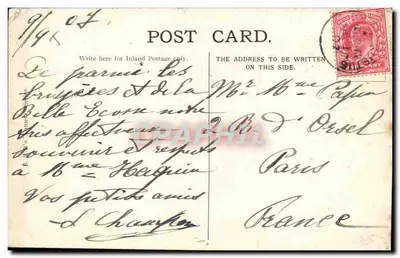 9/9 07
POST CARD.
Write here for Inland Postage only.
THE ADDRESS TO BE WRITTEN
ON THIS SIDE.
De parmi les
et de la
Belle Ecosse notre
très affectueux
souvenir et respects
à Mme
Vos petits amis
L
Mr & Mme Papin
2 R. d'Orsel
Paris
France